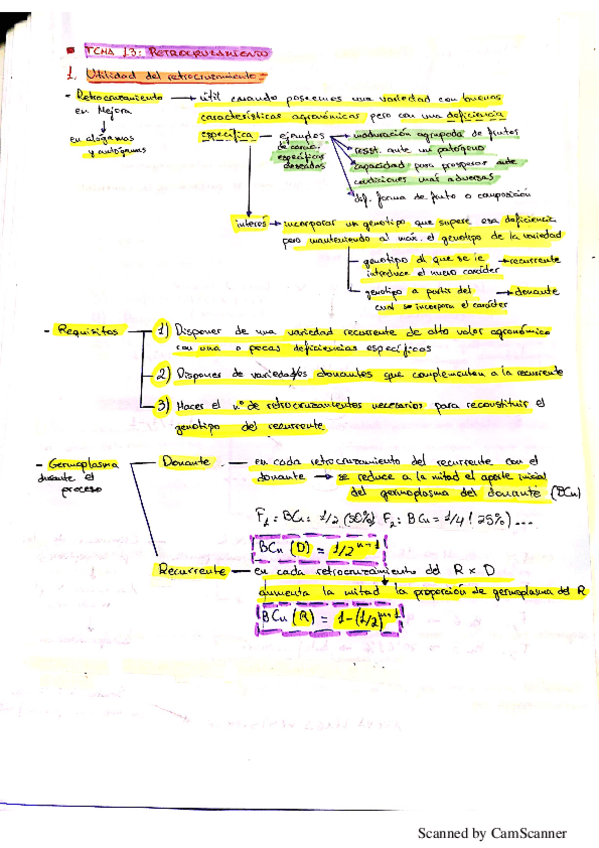 TEMA 13: RETROCRUZAMIENTO
1. Utilidad del retrocruzamiento
- Retrocruzamiento → útil cuando poseemos una variedad con buenas
en Mejora características agronómicas pero con una deficiencia
en alógamas y autógamas
específica → ejemplos de caract. específicas deseadas
→ maduración agrupada de frutos
→ resist. ante un patógeno
→ capacidad para prosperar ante
condiciones más adversas
→ dif. forma de fruto o composición
interés → incorporar un genotipo que supere esa deficiencia
pero manteniendo al máx. el genotipo de la variedad
genotipo al que se le → recurrente
introduce el nuevo carácter
genotipo a partir del → donante
cual se incorpora el carácter
- Requisitos
1) Disponer de una variedad recurrente de alto valor agronómico
con una o pocas deficiencias específicas
2) Disponer de variedad/es donantes que complementan a la recurrente
3) Hacer el nº de retrocruzamientos necesarios para reconstituir el
genotipo del recurrente
- Germoplasma durante el proceso
Donante — en cada retrocruzamiento del recurrente con el
donante → se reduce a la mitad el aporte inicial
del germoplasma del donante (BCn)
F1: BCn: 1/2 (50%) F2: BCn = 1/4 (25%) ...
BCn (D) = 1/2^n+1
Recurrente — en cada retrocruzamiento del R x D
aumenta la mitad la proporción de germoplasma del R
BCn (R) = 1-(1/2)^n+1
Scanned by CamScanner